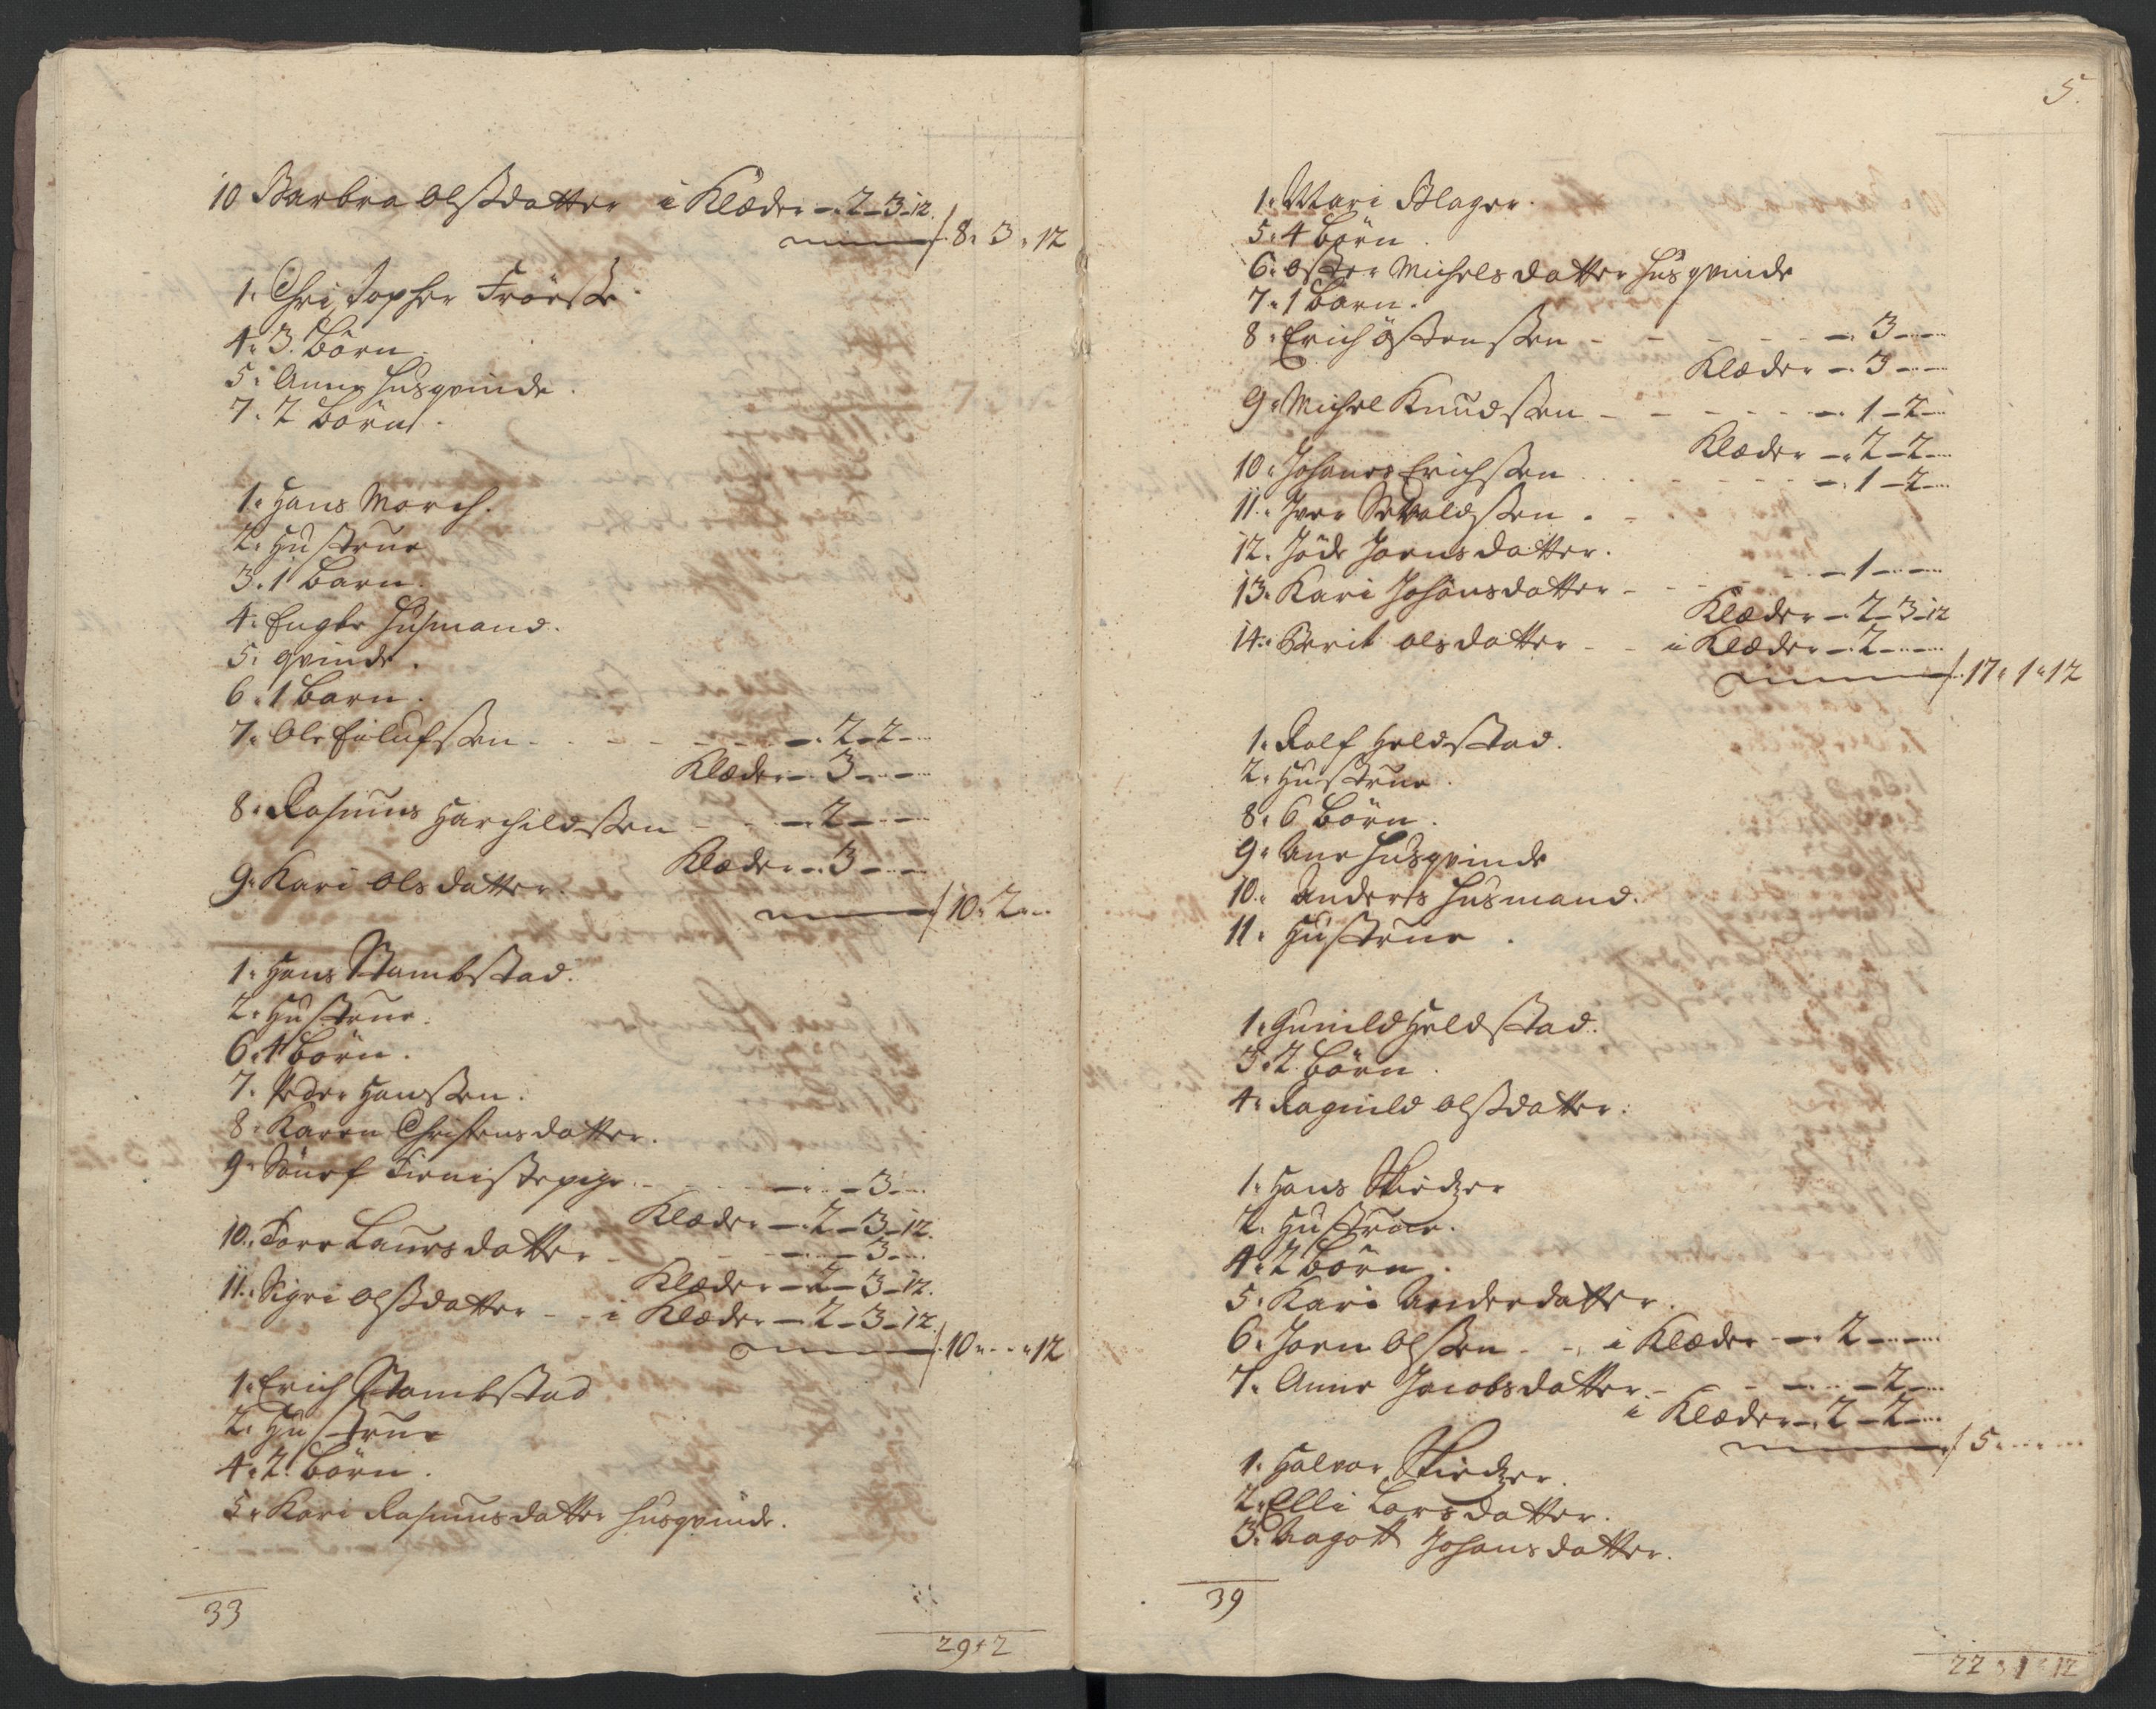 10 Barbra Olsdatter i Klæder - 2 - 3 - 12.
8 . 3 . 12
1. Christopher Frörße
4. 3. Börn.
5. Anne Husqvinde.
7. 2 Börn.
1. Hans Morch.
2. Hustrue
3. 1 Barn.
4. Engbr Husmand.
5. qvinde.
6. 1 Barn.
7. Ole Eilufsen - - - - 2 - 2 -
Klæder - 3 -
8. Rasmus Harchildsen - - - 2 -
Klæder - 3 -
9. Kari Olsdatter.
10 . 2 .
1. Hans Stambstad.
2. Hustrue.
6. 4 Börn.
7. Peder Hansen.
8. Karen Christensdatter.
9. Tienistepige - - - 3 -
Klæder - 2 - 3 - 12.
10. Tore Laursdatter - - - 3 -
Klæder - 2 - 3 - 12.
11. Sigri Olsdatter - - i Klæder - 2 - 3 - 12.
10 . . . 12
1. Erich Stambstad
2. Hustrue
4. 2. Börn.
5. Kari Rasmusdatter Husqvinde.
33
29 . 2
5.
1. Mari Blager.
5. 4 Börn.
6. Michelsdatter Husqvinde
7. 1 Barn.
8. Erich Östensen - - - - 3 -
Klæder - 3 -
9. Michel Knudsen - - - - 1 - 2 -
Klæder - 2 - 2 -
10. Johanes Erichsen - - - 1 - 2 -
11. Iver Sevaldsen -
12. Jöde Jornsdatter.
13. Kari Johansdatter - - - 1 -
Klæder - 2 - 3 - 12
14. Berit Olsdatter - - i Klæder - 2 -
17 . 1 . 12
1. Rolf Heldstad.
2. Hustrue.
8. 6 Börn.
9. Ane Husqvinde
10. Anders Husmand.
11. Hustrue.
1. Gunild Heldstad.
3. 2. Börn.
4. Ragnild Olsdatter.
1. Hans
2. Hustrue.
4. 2 Börn.
5. Kari Anderdatter.
6. Jorn Olsen - - i Klæder - 2 -
7. Anne Jacobsdatter - - - 2 -
i Klæder - 2 - 2 -
5 . . .
1. Halvor
2. Elli Larsdatter.
3. Aagott Johansdatter.
39
22 . 1 . 12